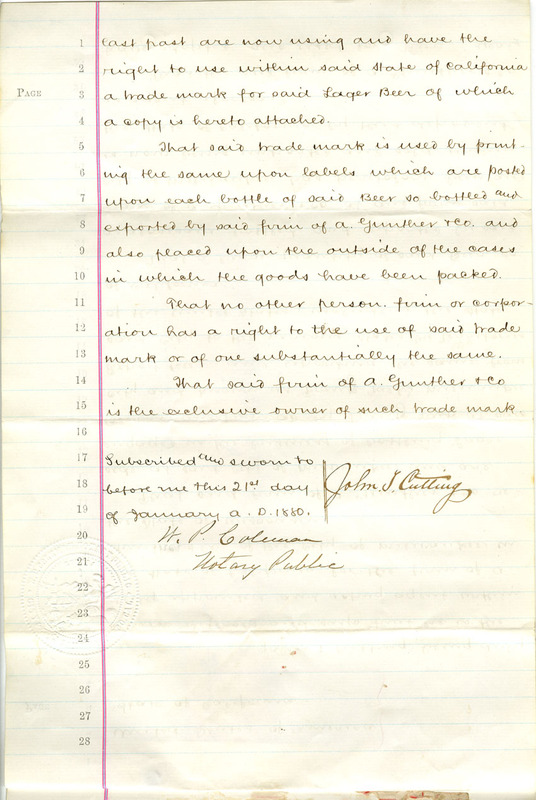 1 last past are now using and have the
2 right to use within said State of California
PAGE 3 a trade mark for said Lager Beer of which
4 a copy is hereto attached.
5 That said trade mark is used by print-
6 ing the same upon labels which are posted
7 upon each bottle of said Beer so bottled and
8 exported by said firm of A. Gunther & Co. and
9 also placed upon the outside of the cases
10 in which the goods have been packed.
11 That no other person. firm or corpor-
12 ation has a right to the use of said trade
13 mark or of one substantially the same.
14 That said firm of A. Gunther & Co
15 is the exclusive owner of such trade mark.
16
17 Subscribed and sworn to
18 before me this 21st day John. J. Cutting
19 of January A. D. 1880.
20 W. P. Coleman
21 Notary Public
22
23
24
25
26
27
28